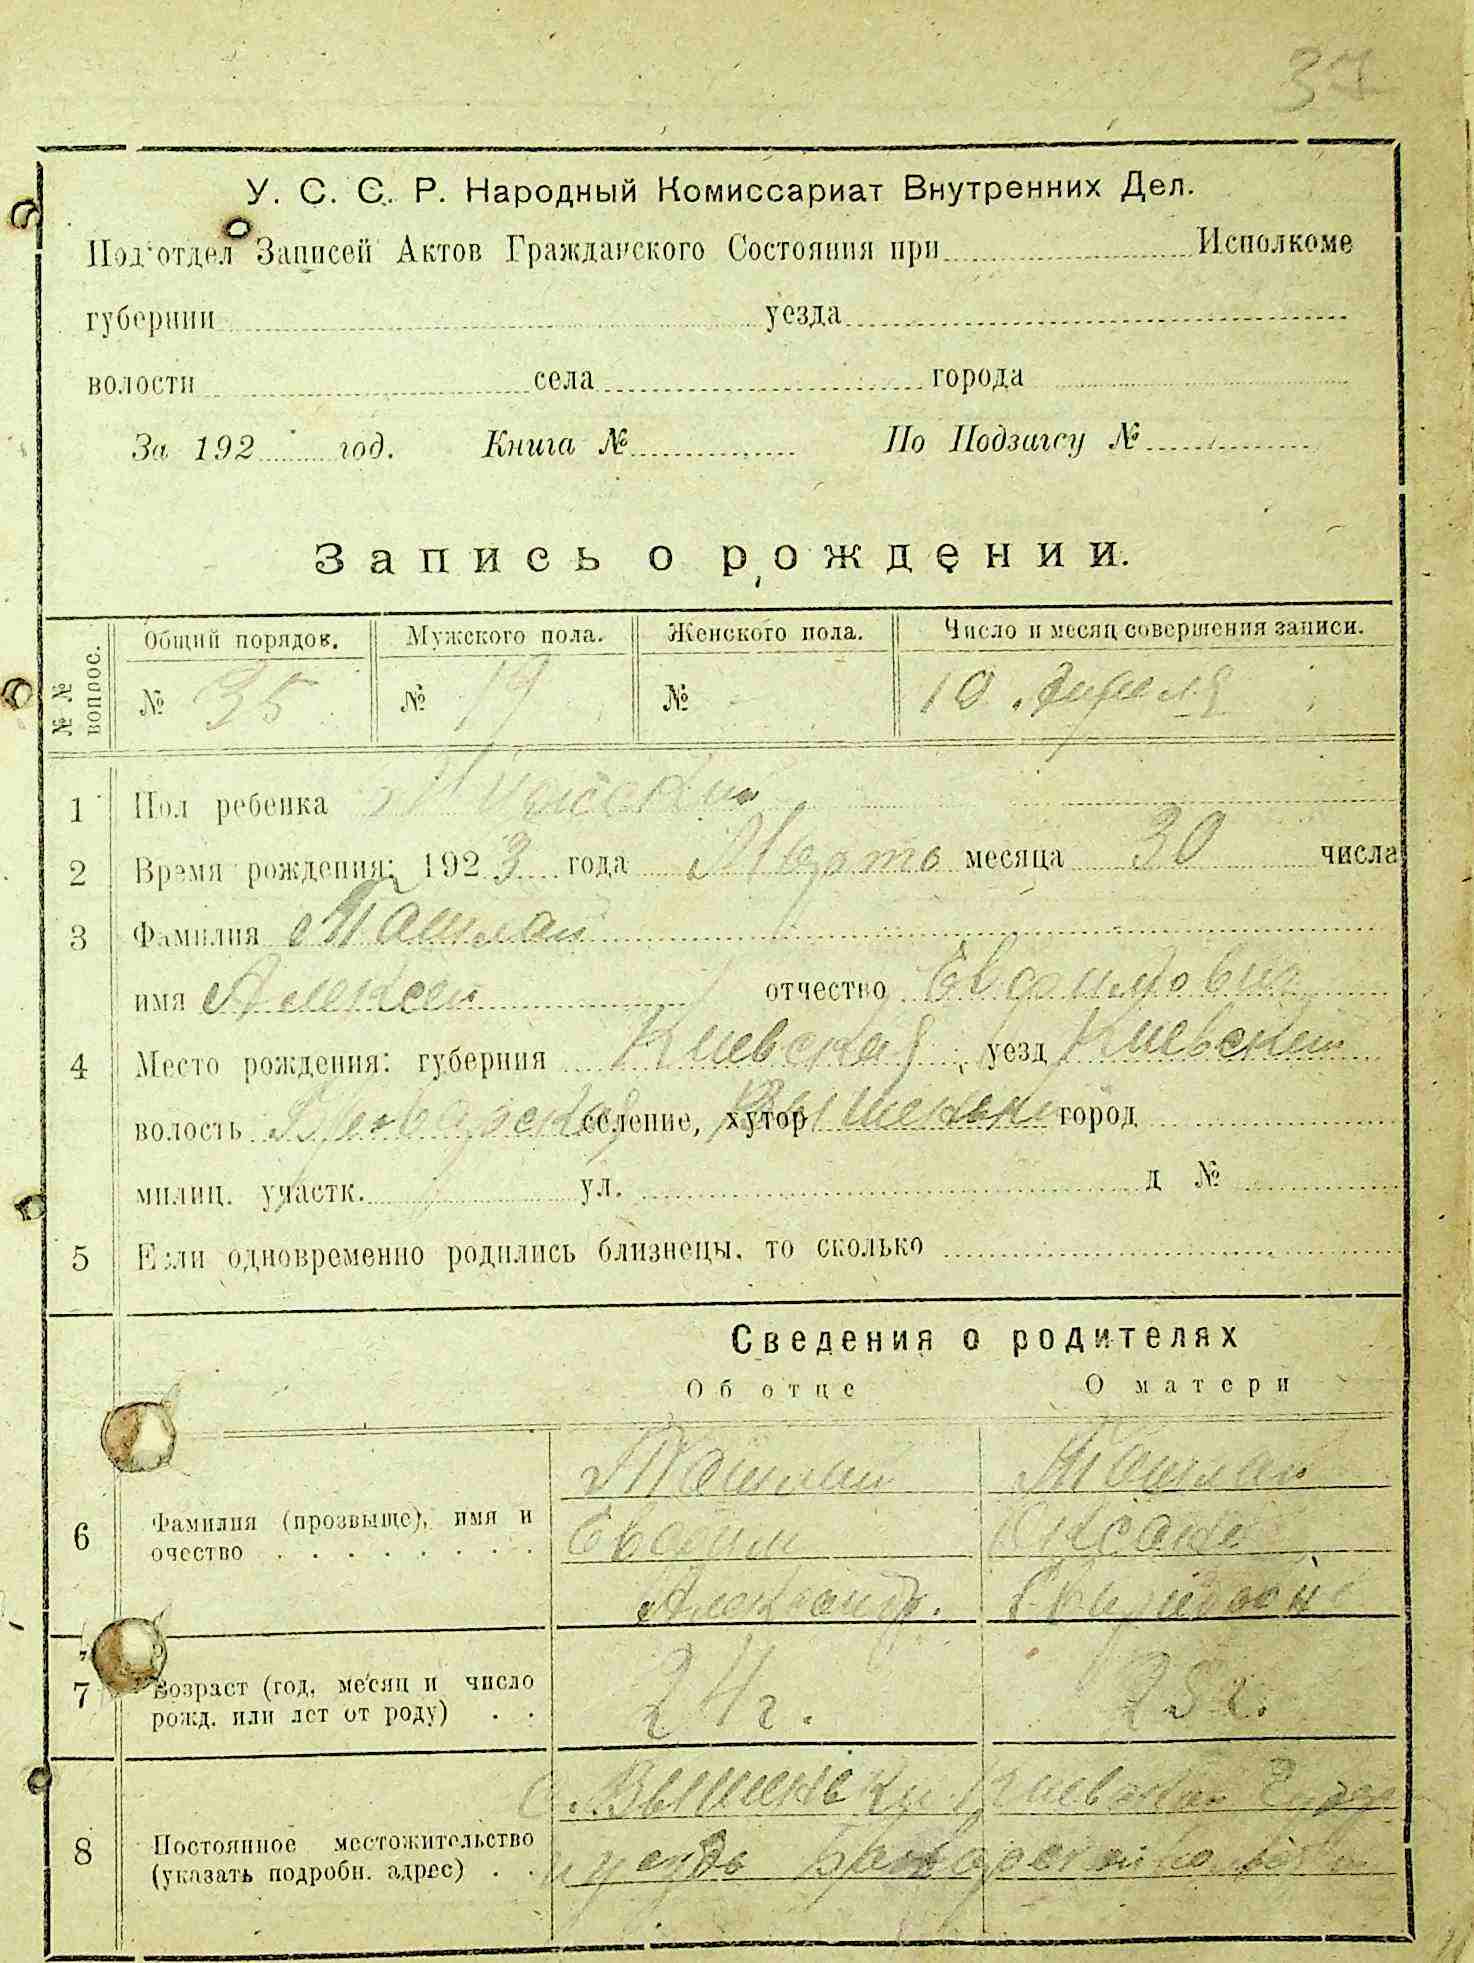 37
У. С. С. Р. Народный Комиссариат Внутренних Дел.
Подотдел Записей Актов Гражданского Состояния при Исполкоме
губернии уезда
волости села города
За 192 год. Книга № По Подзагсу №
Запись о рождении.
№ № вопрос. Общий порядов. Мужского пола. Женского пола. Число и месяц совершения записи.
№ 35 № 19 № - 10 Апреля
1 Пол ребенка Мужской
2 Время рождения: 1923 года Март месяца 30 числа
3 Фамилия Ташлай
имя Алексей отчество Евдоимович
4 Место рождения: губерния Киевская, уезд Киевский
волость Броварская селение, хутор Вишеньки город
милиц. участк. ул. д №
5 Если одновременно родились близнецы, то сколько
Сведения о родителях
Об отце О матери
Ташлай Ташлай
6 Фамилия (прозвыще), имя и очество Евдоким Оксана
Александр.
7 Возраст (год, месяц и число рожд. или лет от роду) 24 г. 25 г.
с. Вышеньки Киевской Губер
8 Постоянное местожительство (указать подробн. адрес) и уезда Броварской волости